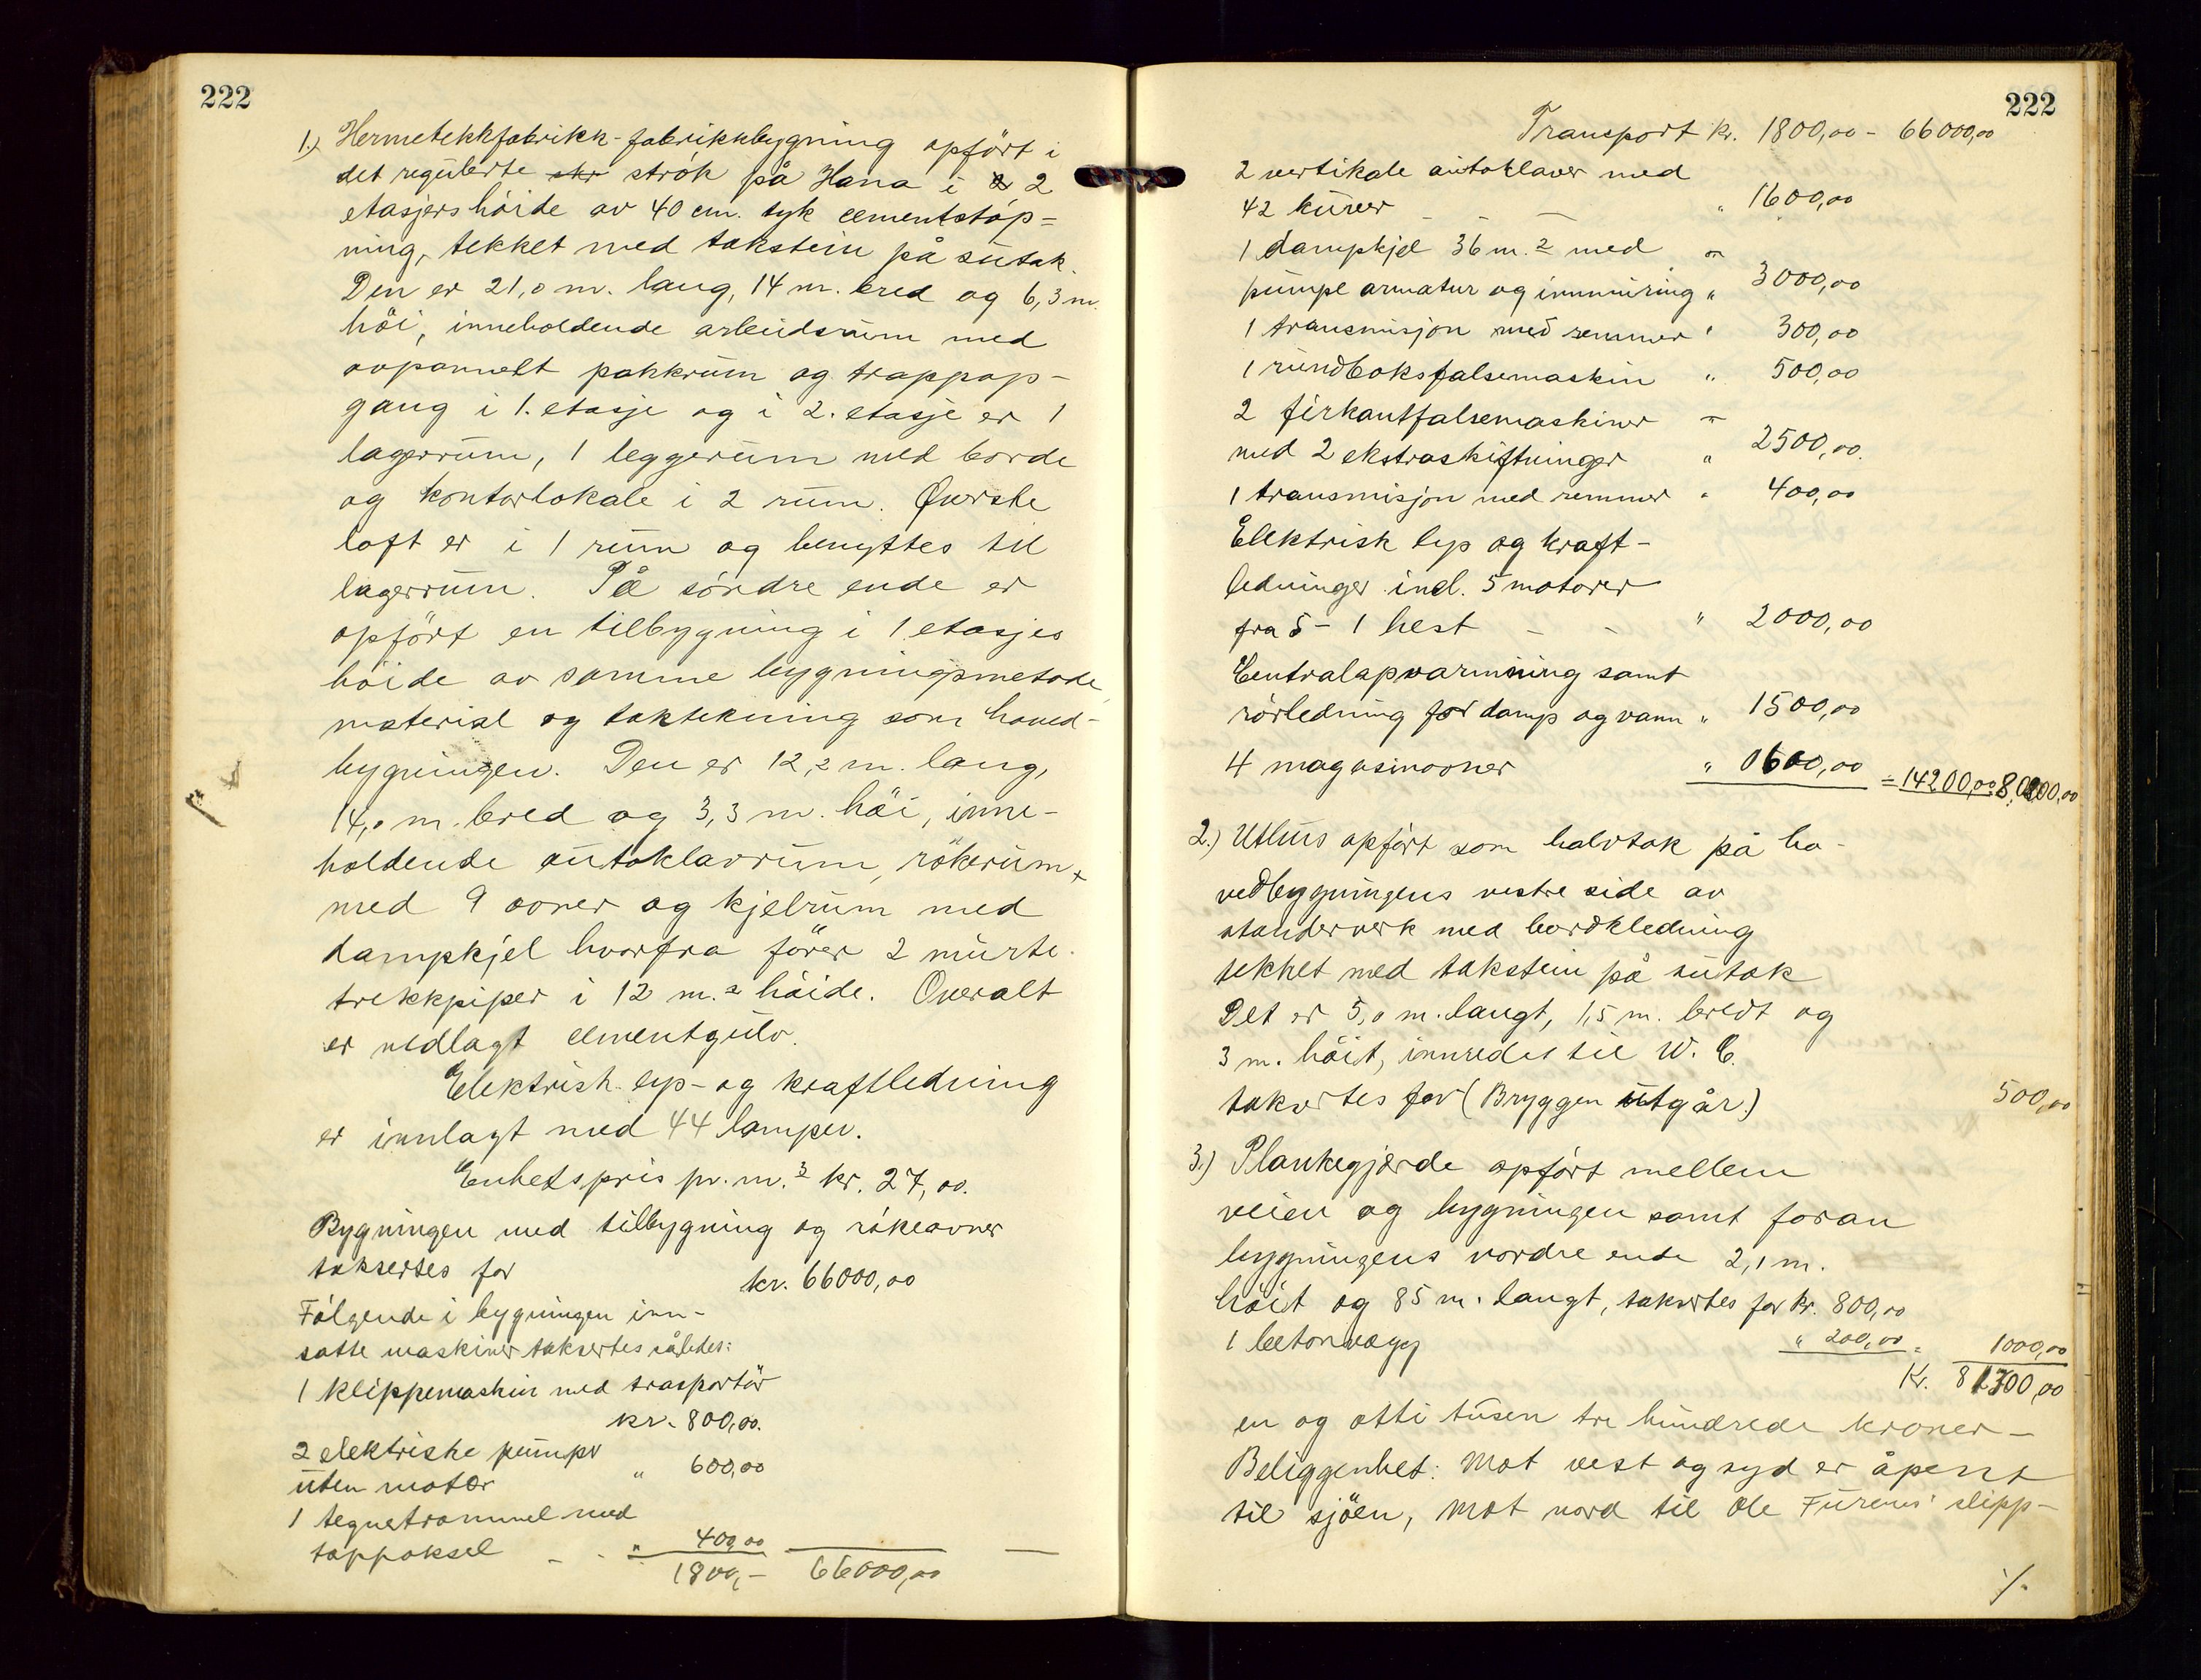 222
1.) Hermetekkfabrikk-fabrikkbygning opført i
det regulerte skr strøk på Hana i 2
etasjers høide av 40 cm. tyk cementstøp=
ning, tekket med takstein på sutak.
Den er 21,0 m. lang, 14 m. bred og 6,3 m.
höi, inneholdende arbeidsrum med
avpannelt pakkrum og trappop-
gang i 1. etasje og i 2. etasje er 1
lagerrum, 1 leggerum med borde
og kontorlokale i 2 rum. Øverste
loft er i 1 rum og benyttes til
lagerrum. På søndre ende er
opført en tilbygning i 1 etasjes
höide av samme bygningsmetode,
material og taktekning som hoved-
bygningen. Den er 12,2 m. lang,
14,0 m. bred og 3,3 m. höi, inne-
holdende autoklavrum, rökerum
med 9 ovner og kjelrum med
dampkjel hvorfra förer 2 murte
trekkpiper i 12 m.s höide. Overalt
er nedlagt cementgulv.
Elektrisk lys- og kraftledning
er innlagt med 44 lamper.
Enhetspris pr. m.3 kr. 27,00.
Bygningen med tilbygning og rökeovner
taksertes for kr. 66000,00
Følgende i bygningen inn-
satte maskiner taksertes således:
1 klippemaskin med trasportör
kr. 800,00.
2 elektriske pumper
uten motor " 600,00
1 tegnetrommel med
toppaksel - - " 400,00
1800,- 66000,00
222
Transport kr. 1800,00 - 66000,00
2 vertikale autoklaver med
42 kurver - - - " 1600,00
1 dampkjel 36 m.2 med
pumpe armatur og innmuring " 3000,00
1 transmisjon med remmer " 300,00
1 rundboksfalsemaskin " 500,00
2 firkantfalsemaskiner
med 2 ekstraskiftninger " 2500,00.
1 transmisjon med remmer " 400,00
Elektrisk lys og kraft-
ledninger incl. 5 motorer
fra 5 - 1 hest - - " 2000,00
Centralopvarmning samt
rörledning for damp og vann " 1500,00
4 magasinovner " 0600,00 = 14200,00
2.) Uthus opført som halvtak på ho-
vedbygningens vestre side av
stenderverk med bordkledning
tekket med takstein på sutak
Det er 5,0 m. langt, 1,5 m. bredt og
3 m. höit, innredet til W. C.
takseres for (Bryggen utgår.) 500,00
3.) Plankegjerde opført mellem
veien og bygningen samt foran
bygningens nordre ende 2,1 m.
höit og 85 m. langt, taksertes for kr. 800,00
1 betonvegg " 200,00 = 1000,00
Kr. 81700,00
en og otti tusen tre hundrede kroner -
Beliggenhet: Mot vest og syd er åpent
til sjöen, mot nord til Ole Furenes' slipp-
./.